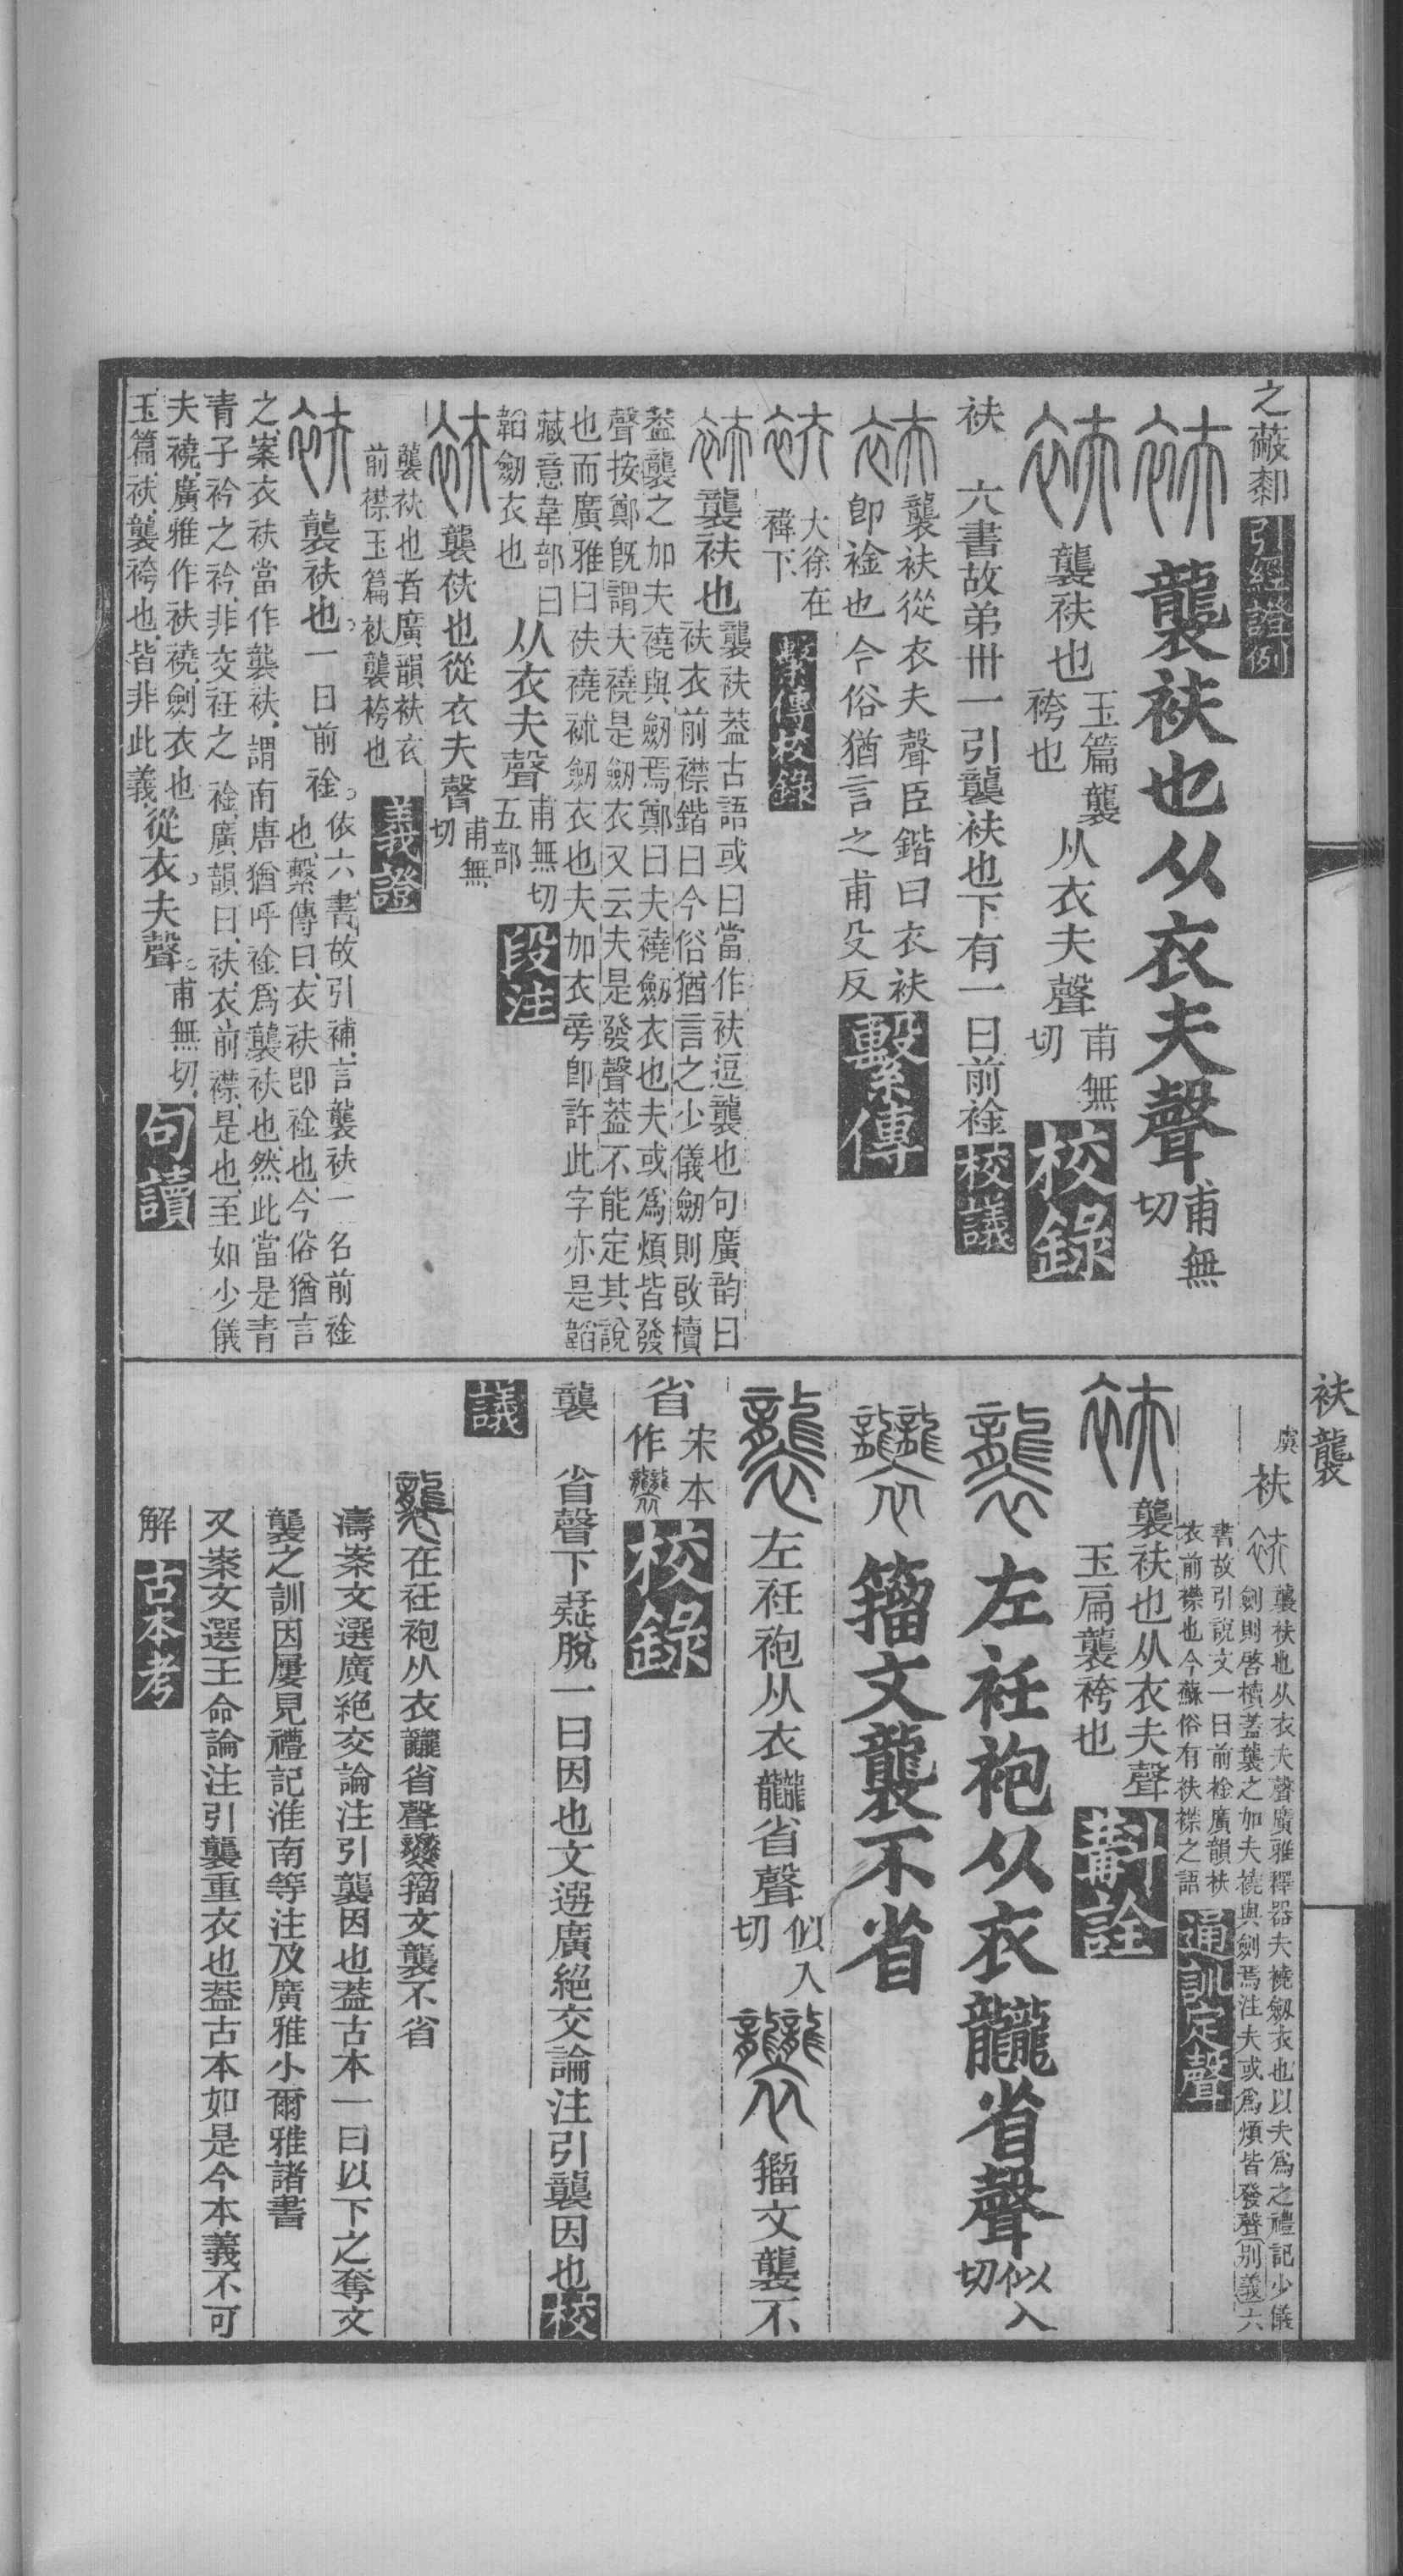 之蔽䣛 引經證例
襲袚也从衣夫聲 甫無切
襲袚也 玉篇襲袴也 从衣夫聲 甫無切 校錄
袂 六書故弟卌一引襲袂也下有一曰前䘳 校議
襲袂從衣夫聲臣鍇曰衣袂
卽䘳也今俗猶言之甫殳反 繫傳
大徐在褘下 繫傳校錄
襲袂也 襲袂葢古語或曰當作袂逗襲也句廣韵曰
袂衣前襟鍇曰今俗猶言之少儀劒則啟櫝
葢襲之加夫襓與劒焉鄭曰夫襓劒衣也夫或爲煩皆發
聲按鄭旣謂夫襓是劒衣又云夫是發聲葢不能定其說
也而廣雅曰袂襓袾劒衣也夫加衣㫄卽許此字亦是韜
藏意韋部曰韜劒衣也 从衣夫聲 甫無切五部 段注
襲袂也從衣夫聲 甫無切
襲袂也者廣韻袂衣前襟玉篇袂襲袴也 義證
襲袂也一曰前䘳 依六書故引補言襲袂一名前䘳
也繫傳曰衣袂卽䘳也今俗猶言
之案衣袂當作襲袂謂南唐猶呼䘳爲襲袂也然此當是青
青子衿之衿非交衽之䘳廣韻曰袂衣前襟是也至如少儀
夫襓廣雅作袂襓劍衣也
玉篇袂襲袴也皆非此義 從衣夫聲 甫無切 句讀
袂襲
虞 袂 襲袂也从衣夫聲廣雅釋器夫襓劒衣也以夫爲之禮記少儀
劍則啓櫝葢襲之加夫襓與劍焉注夫或爲煩皆發聲別義六
書故引說文一曰前䘳廣韻袂
衣前襟也今蘇俗有袂襟之語 通訓定聲
襲袂也从衣夫聲
玉扁襲袴也 斠詮
左衽袍从衣龖省聲 似入切
籒文襲不省
左衽袍从衣龖省聲 似入切 籒文襲不
省 宋本作 校錄
襲 省聲下疑脫一曰因也文選廣絕交論注引襲因也 校
議
在衽袍从衣龖省聲籒文襲不省
濤案文選廣絕交論注引襲因也葢古本一曰以下之奪文
襲之訓因屢見禮記淮南等注及廣雅小爾雅諸書
又案文選王命論注引襲重衣也葢古本如是今本義不可
解 古本考